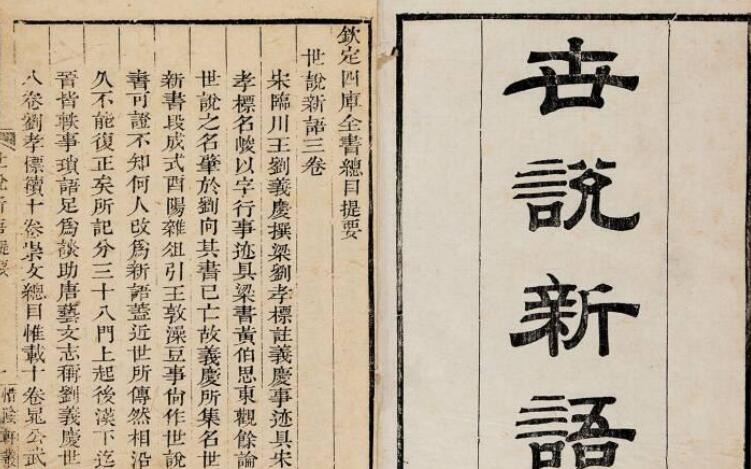 世說新語
欽定四庫全書總目提要
世說新語三卷
宋臨川王劉義慶撰梁劉孝標註義慶事迹具宋
孝標名峻以字行事迹具梁書黃伯思東觀餘論
世說之名肇於劉向其書已亡故義慶所集名世
新書段成式酉陽雜俎引王敦澡豆事尙作世說
書可證不知何人改爲新語蓋近世所傳然相沿
久不能復正矣所記分三十八門上起後漢下迄
晉皆軼事瑣語足爲談助唐藝文志稱劉義慶世
八卷劉孝標續十卷崇文總目惟載十卷晁公武